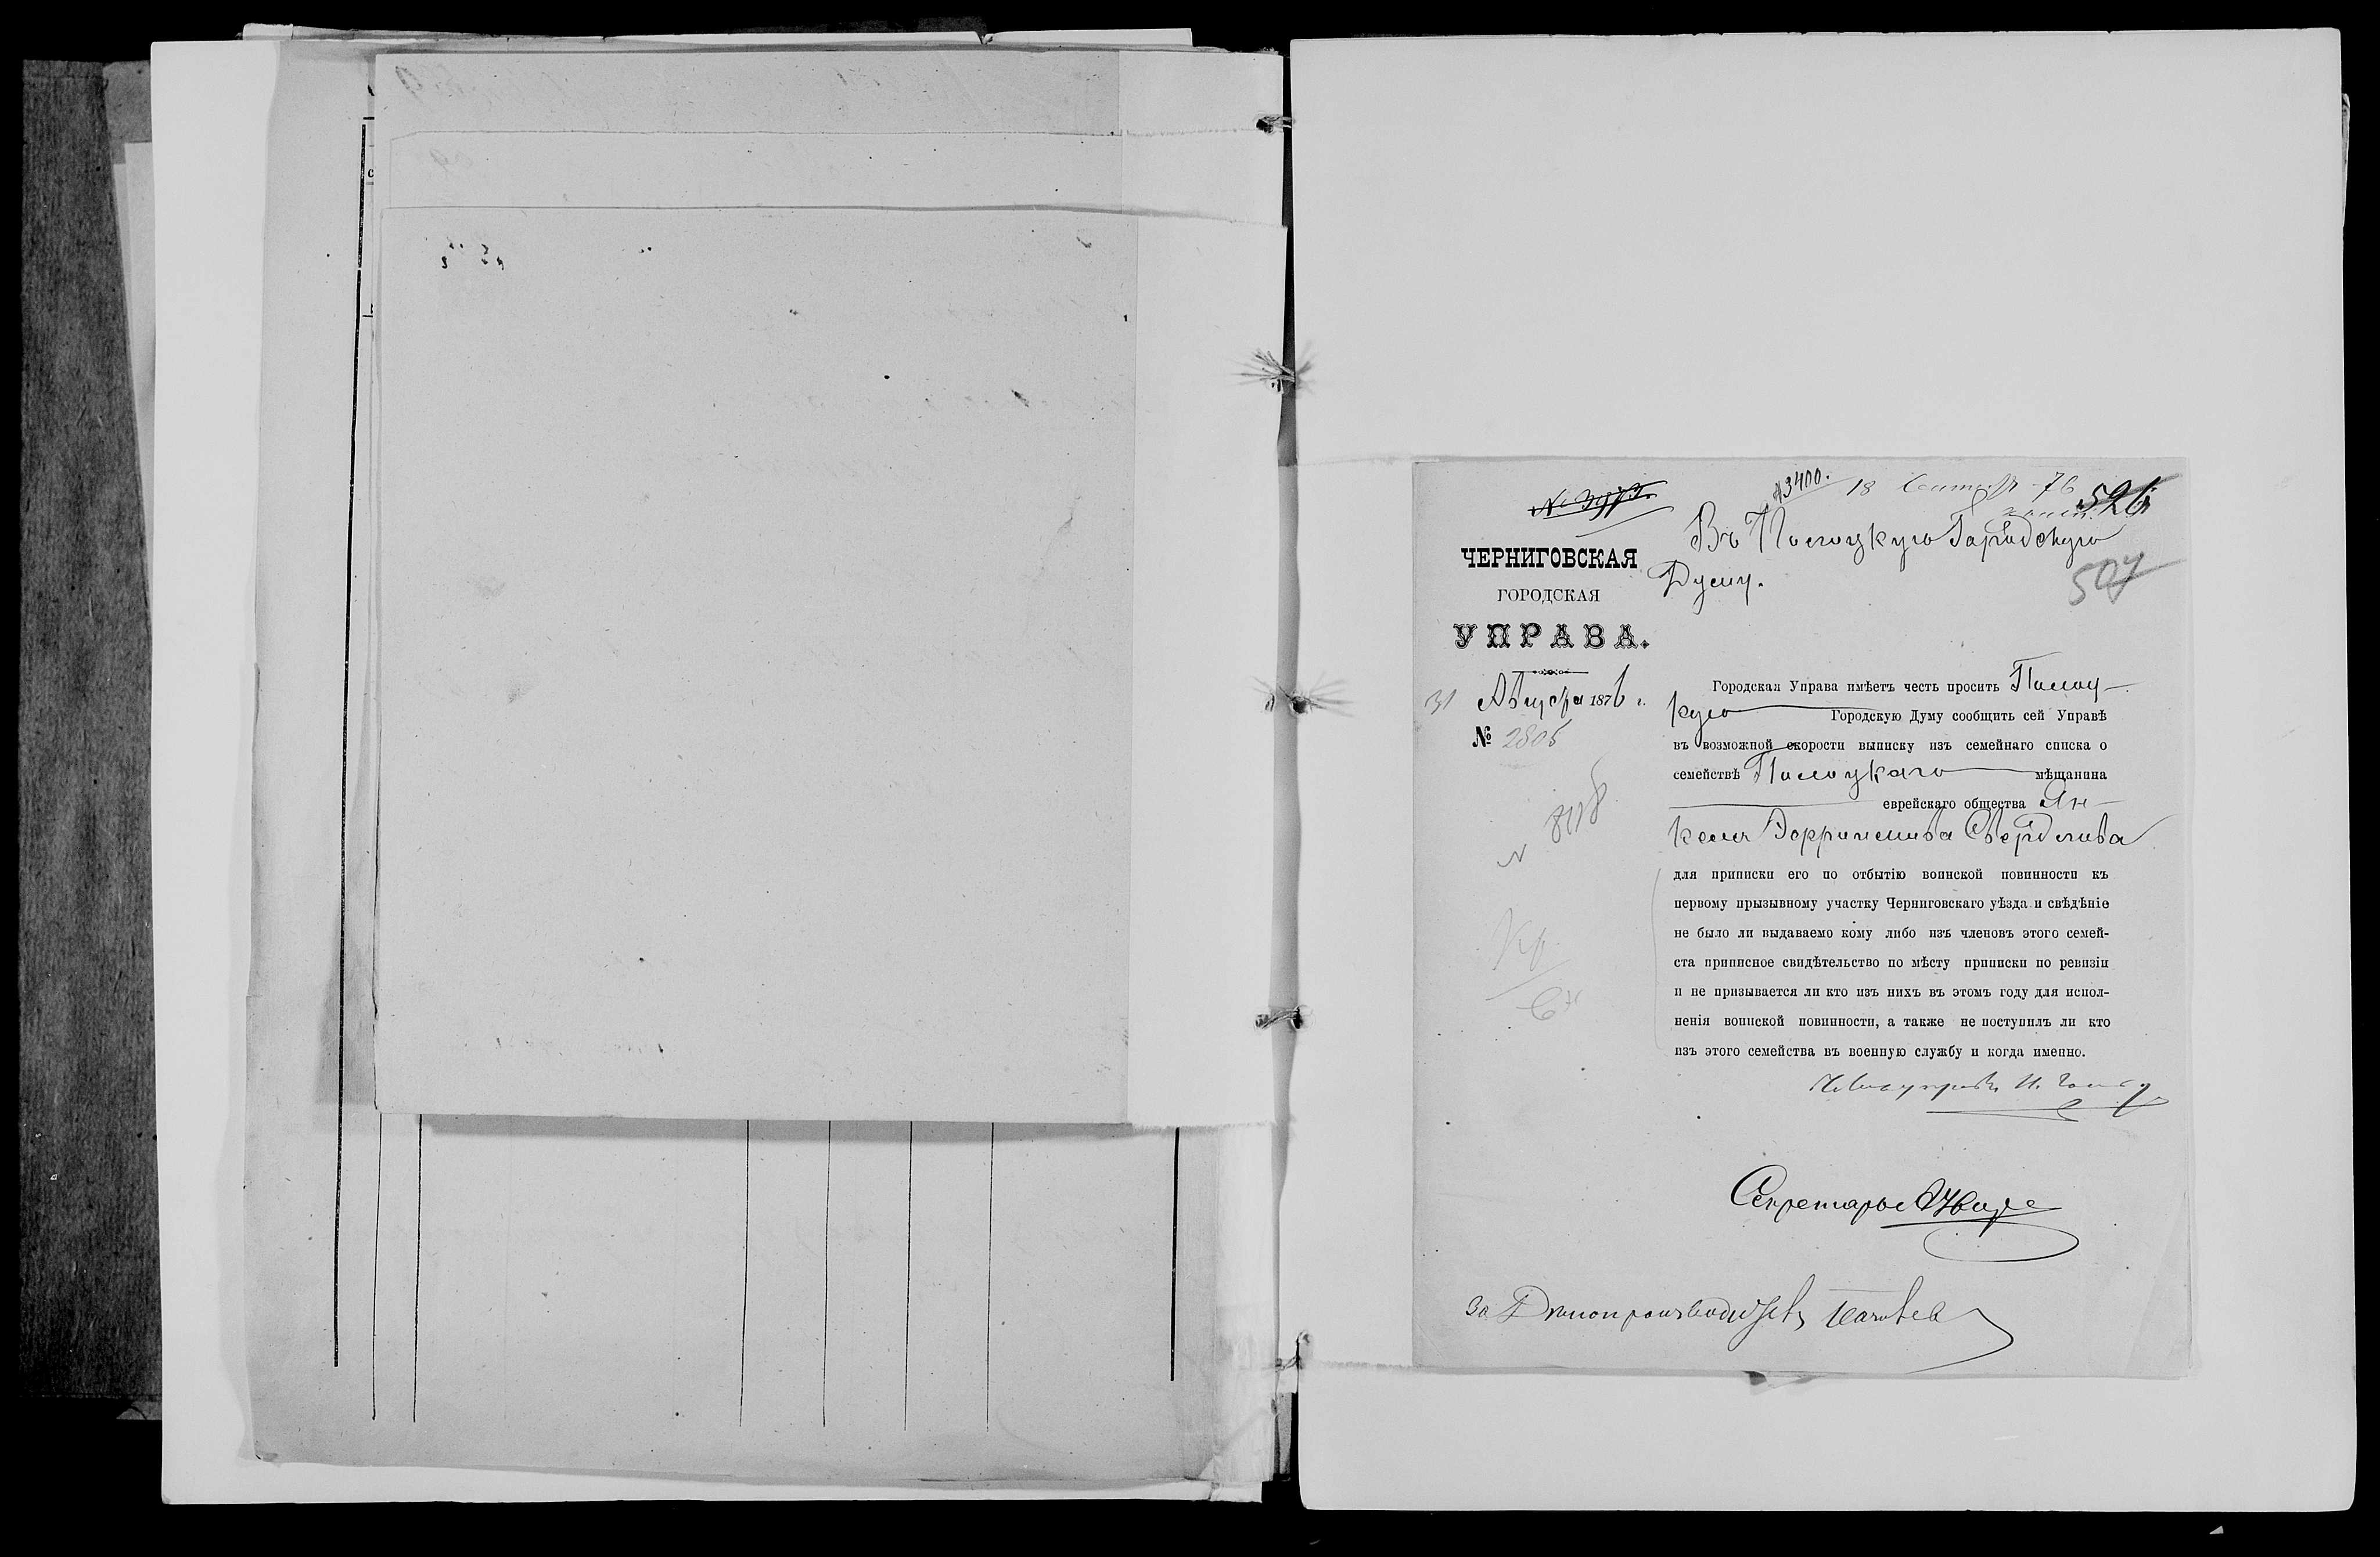 3400. 18 Сентбр 76
526
Въ Полоцкую Городскую
Думу.
507
ЧЕРНИГОВСКАЯ
ГОРОДСКАЯ
УПРАВА.
31 Августа 1876 г.
№ 2805
Городская Управа имѣетъ честь просить Полоц-
кую Городскую Думу сообщить сей Управѣ
въ возможной скорости выписку изъ семейнаго списка о
семействѣ Полоцкаго мѣщанина
еврейскаго общества Ян-
келя Свердлова
для приписки его по отбытію воинской повинности къ
первому прызывному участку Черниговскаго уѣзда и свѣдѣніе
не было ли выдаваемо кому либо изъ членовъ этого семей-
ста приписное свидѣтельство по мѣсту приписки по ревизіи
и не призывается ли кто изъ нихъ въ этомъ году для испол-
ненія воинской повинности, а также не поступилъ ли кто
изъ этого семейства въ военную службу и когда именно.
Секретарь
За Дѣлопроизводителя